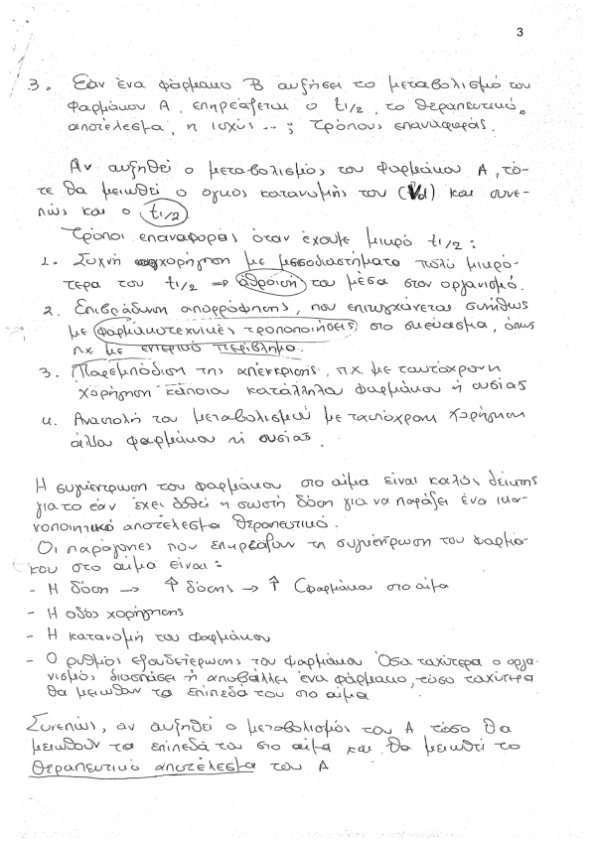 3
3. Εάν ένα φάρμακο Β αυξήσει το μεταβολισμό του
Φαρμάκου Α, επηρεάζεται ο t1/2, το θεραπευτικό
αποτέλεσμα, η ισχύς...; Τρόπους επαναφοράς.
Αν αυξηθεί ο μεταβολισμός του Φαρμάκου Α, τό-
τε θα μειωθεί ο όγκος κατανομής του (Vd) και συνε-
πώς και ο t1/2
Τρόποι επαναφοράς όταν έχουμε μικρό t1/2:
1. Συχνή χορήγηση με μεσοδιαστήματα πολύ μικρό-
τερα του t1/2 → άθροιση του μέσα στον οργανισμό.
2. Επιβράδυνση απορρόφησης, που επιτυγχάνεται συνήθως
με φαρμακοτεχνικές τροποποιήσεις στο σκεύασμα, όπως
πχ με εντερικό περίβλημα.
3. Παρεμπόδιση της απέκκρισης, πχ με ταυτόχρονη
χορήγηση κάποιου κατάλληλου φαρμάκου ή ουσίας
4. Αναστολή του μεταβολισμού με ταυτόχρονη χορήγηση
άλλου φαρμάκου ή ουσίας.
Η συγκέντρωση του φαρμάκου στο αίμα είναι καλός δείκτης
για το εάν έχει δοθεί η σωστή δόση για να παράξει ένα ικα-
νοποιητικό αποτέλεσμα θεραπευτικό.
Οι παράγοντες που επηρεάζουν τη συγκέντρωση του φαρμά-
κου στο αίμα είναι:
- Η δόση → ↑ δόσης → ↑ Cφαρμάκου στο αίμα
- Η οδός χορήγησης
- Η κατανομή του φαρμάκου
- Ο ρυθμός εξουδετέρωσης του φαρμάκου Όσο ταχύτερα ο οργα-
νισμός διασπάσει ή αποβάλλει ένα φάρμακο, τόσο ταχύτερα
θα μειωθούν τα επίπεδά του στο αίμα
Συνεπώς, αν αυξηθεί ο μεταβολισμός του Α τόσο θα
μειωθούν τα επίπεδά του στο αίμα και θα μειωθεί το
θεραπευτικό αποτέλεσμα του Α